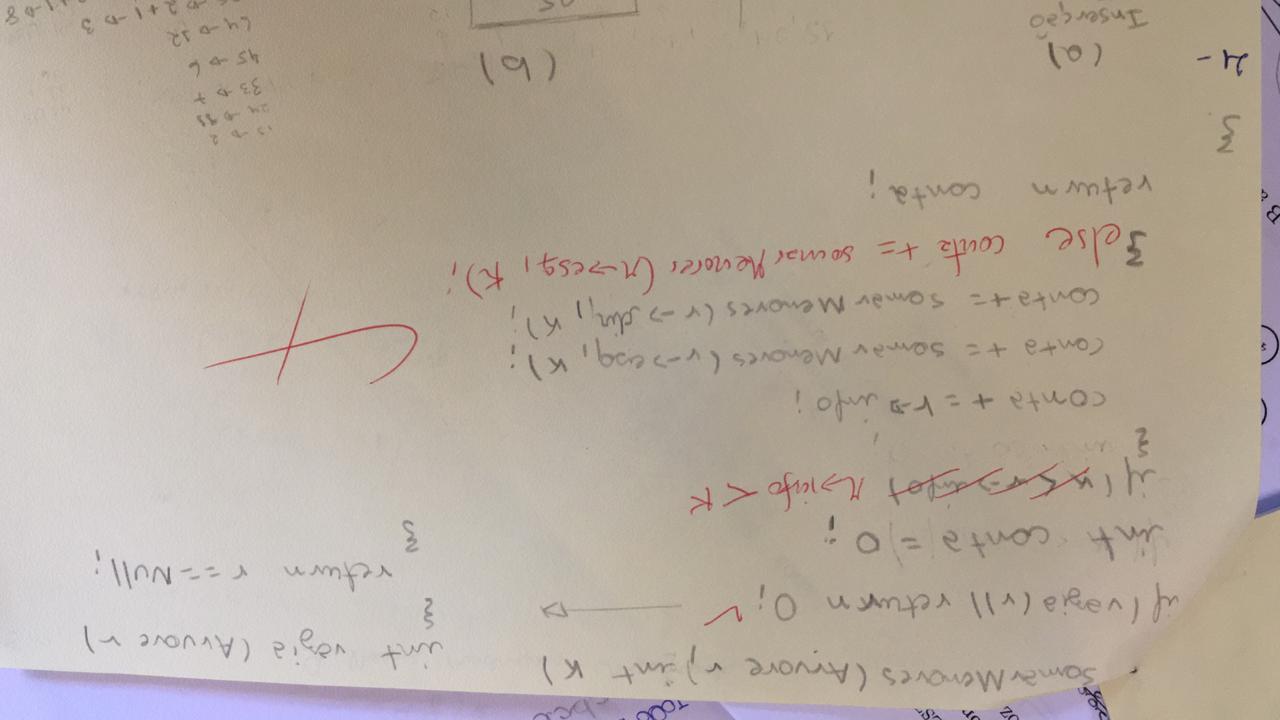 somarMenores (Arvore r, int K)
if (vazia(r)) return 0;
int conta = 0;
if ( r->info < K
{
conta += r-> info;
conta += somarMenores (r->esq, K);
conta += somarMenores (r-> dir, K);
} else conta += somarMenores (r->esq, K);
return conta;
}
int vazia (Arvore r)
{
return r == Null;
}
4-
(a)
Inserção
(b)
33 -> 7
45 -> 6
64 -> 12
2 + 1 -> 3